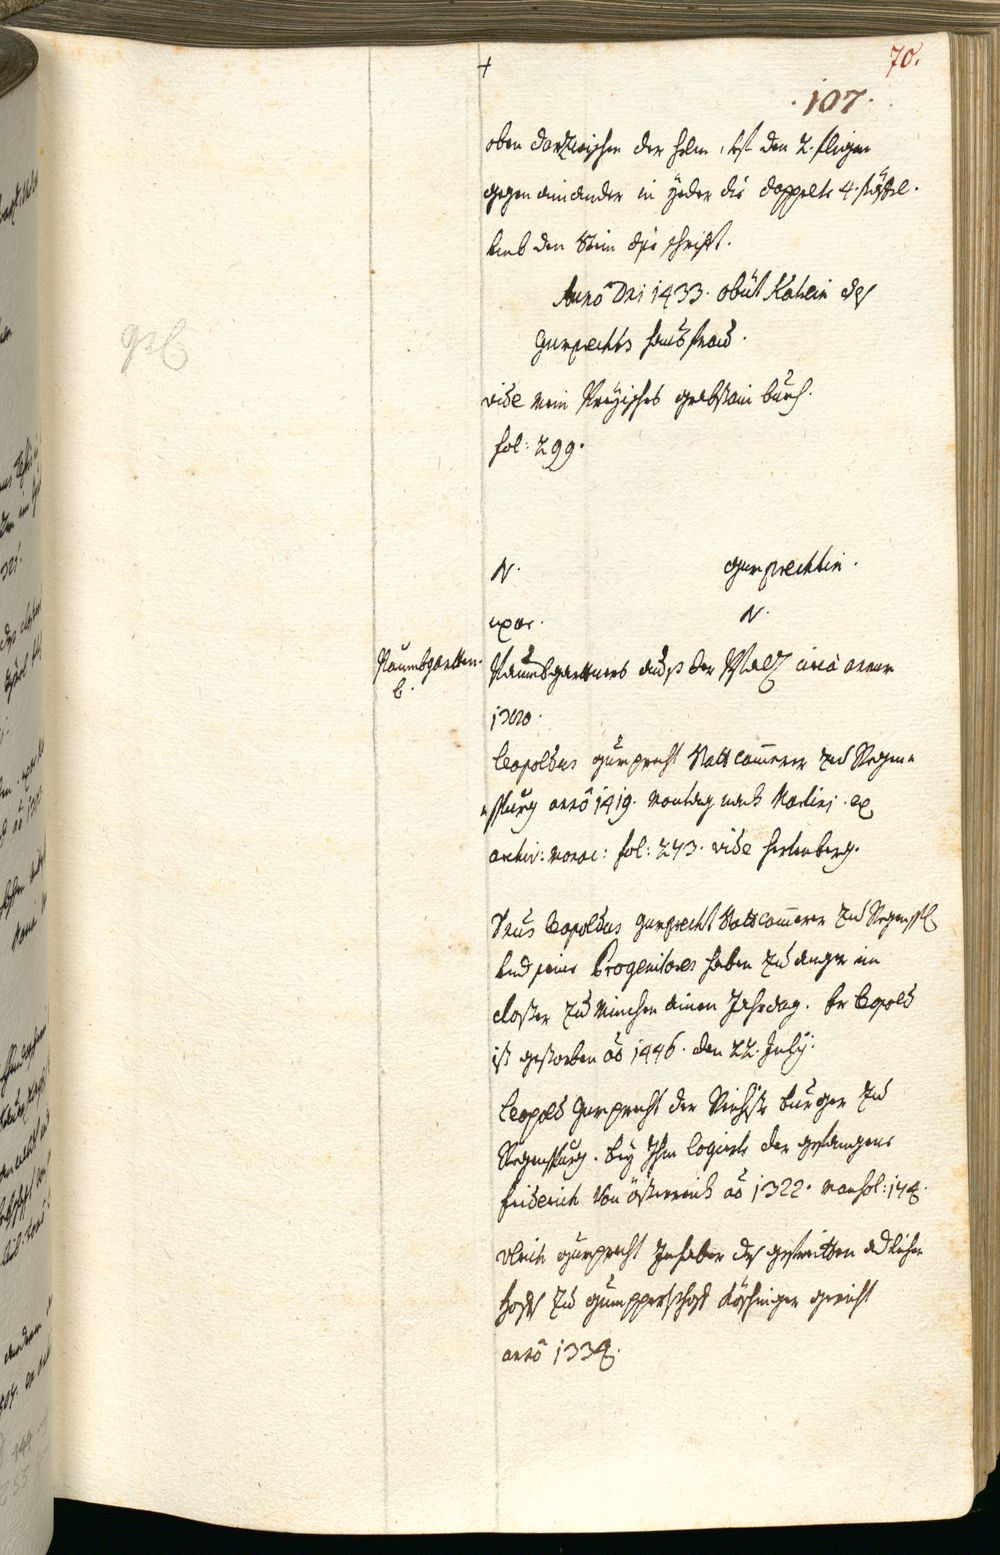 70.
107.
oben darzwischen der helm, ist den 2. fligen
gegen ainander in yeder die doppelte 4.
umb den Stain die schrifft.
Anno Dni 1433. obiit Kathrein des
Gumprechts hausfraw.
vide mein Preysisches grabstain buech.
fol: 299.
N. Gumprechtin.
uxor. N.
Paumbgartten.
Paumbgarttners auß der Pfalz circa annum
Leopoldus Gumprecht Stattcamerer zu Regen=
=spurg anno 1419. Montag nach Martini. ex
archiv: monac: fol: 243. vide hertenberg.
Leopoldus Gumprecht Stattcamerer zu Regenspurg
und seine Progenitores haben zu anger im
closter zu Minchen ainen Jahrdag. Er Leopold
ist gestorben ao 1446. den 22. July.
Leopold Gumprecht der Burger zu
Regenspurg. bey Ihm logierte der gefangene
friderich von österreich ao 1322.
Ulrich Gumprecht Inhaber des gefreitten adlichen
Hoffs zu gericht
anno 1334.